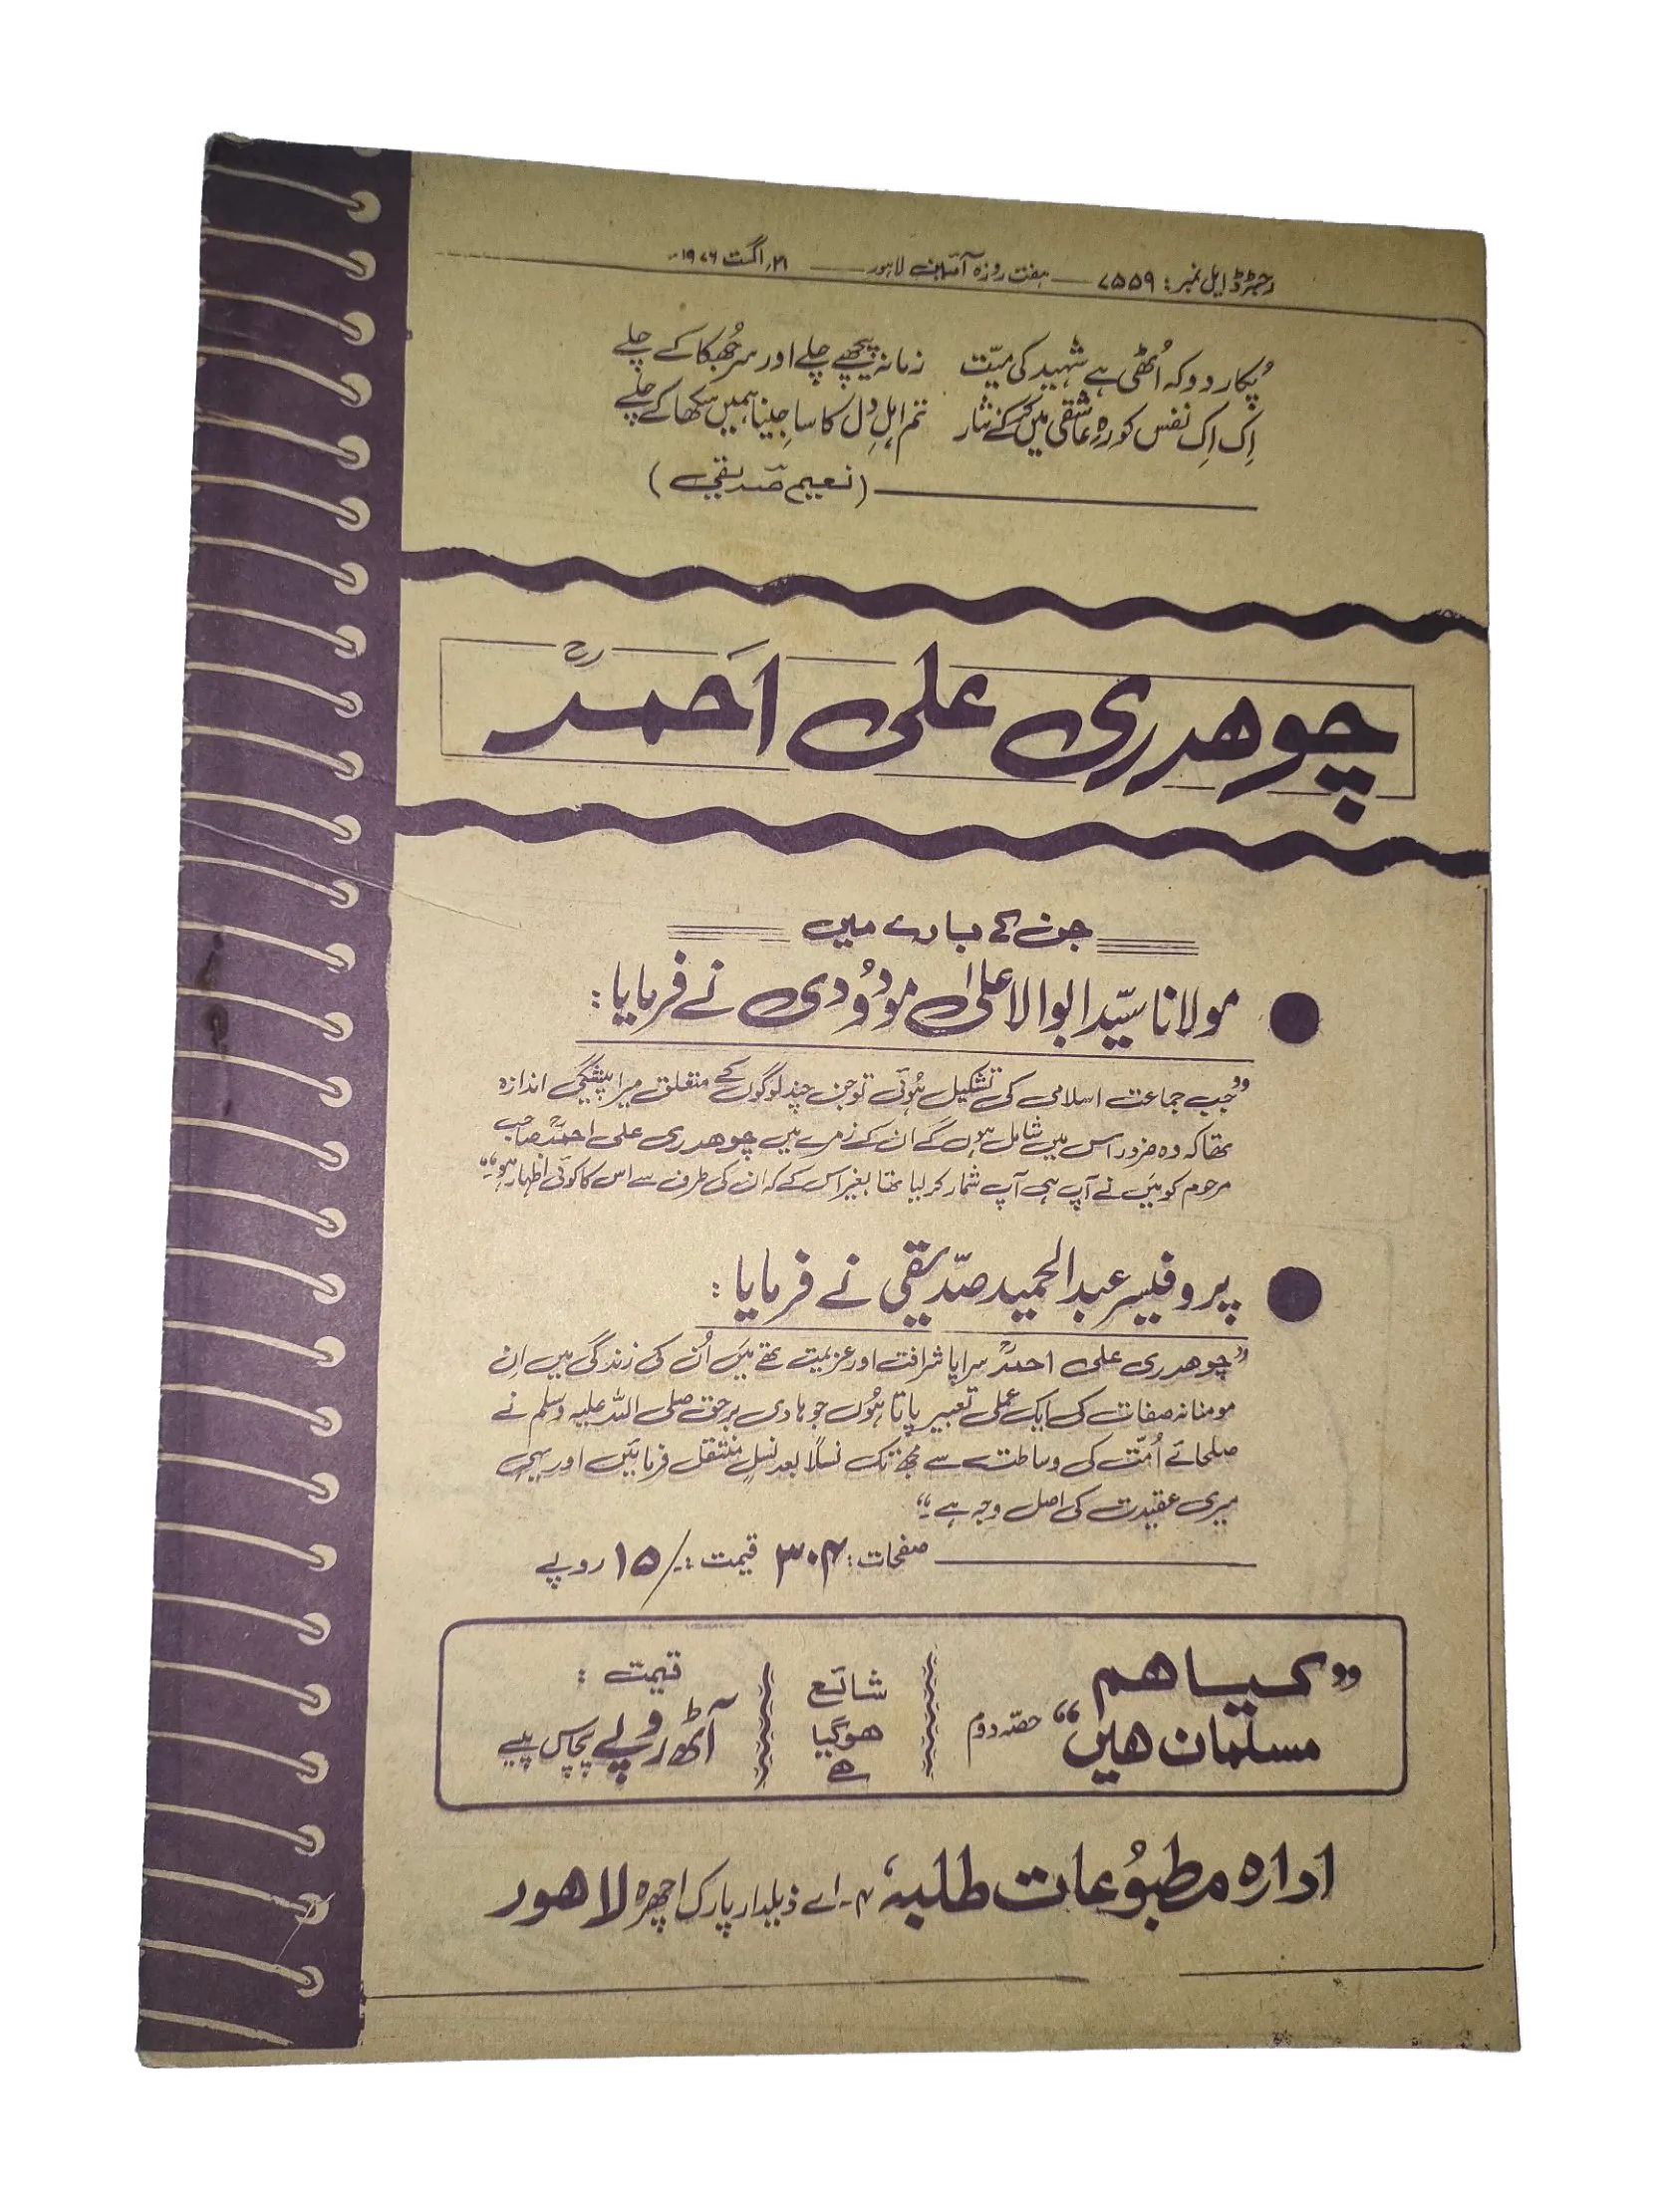 رجسٹرڈ ایل نمبر: ۷۵۵۹ — ہفت روزہ آئین لاہور — ۲۱ اگست ۱۹۷۶ء
پکار دو کہ اُٹھی ہے شہید کی میّت زمانہ پیچھے چلے اور سر جُھکا کے چلے
اِک اِک نفس کو رہِ عاشقی میں کرکے نثار تم اہلِ دل کا سا جینا ہمیں سکھا کے چلے
(نعیم صدیقی)
چوھدری علی احمدؒ
جن کے بارے میں
مولانا سیّد ابوالاعلیٰ مودُودی نے فرمایا:
”جب جماعت اسلامی کی تشکیل ہُوئی تو جن چند لوگوں کے متعلق میرا پیشگی اندازہ
تھا کہ وہ ضرور اس میں شامل ہوں گے ان کے زمرے میں چوھدری علی احمدؒ صاحب
مرحوم کو میں نے آپ ہی آپ شمار کر لیا تھا بغیر اس کے کہ ان کی طرف سے اس کا کوئی اظہار ہو۔“
پروفیسر عبدالحمید صدّیقی نے فرمایا:
”چوھدری علی احمدؒ سراپا شرافت اور عزیمت تھے میں اُن کی زندگی میں اِن
مومنانہ صفات کی ایک عملی تعبیر پاتا ہُوں جو ہادی برحق صلی اللہ علیہ وسلم نے
صلحائے اُمّت کی وساطت سے مجھ تک نسلاً بعد نسلٍ منتقل فرمائیں اور یہی
میری عقیدت کی اصل وجہ ہے۔“
صفحات: ۳۰۴ قیمت: -/۱۵ روپے
”کیا ھم
مسلمان ھیں“ حصّہ دوم
شائع
ھوگیا
ھے
قیمت:
آٹھ روپے پچاس پیسے
ادارہ مطبُوعات طلبہ، ۴-اے ذیلدار پارک اچھرہ لاھور